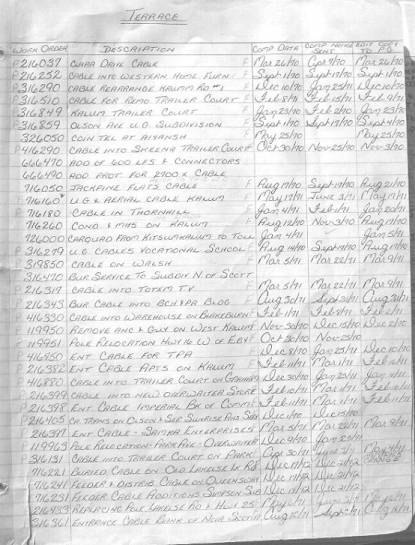 TERRACE
WORK ORDER DESCRIPTION COMP DATE COMP NOTICE SENT EDIT COPY TO P.G.
P 216037 CABLE F Mar 26/70 Apr 9/70 Mar 26/70
P 216252 CABLE INTO WESTERN HOME FURN. F Sept 1/70 Sept 1/70 Sept 1/70
P 316290 CABLE REARRANGE KALUM RD #1 F Dec 10/70 Jan 25/71 Dec 10/70
P 316510 CABLE FOR REMO TRAILER COURT F Feb 8/71 Feb 15/71 Feb 9/71
316849 KALUM TRAILER COURT F Jan 23/70 Feb 2/70 Jan 23/70
P 316859 OLSON AVE U.G. SUBDIVISION F Sept 1/70 Sept 17/70 Sept 4/70
326050 COIN TEL AT AIYANSH May 25/70 May 25/70
416290 CABLE INTO SKEENA TRAILER COURT Oct 30/70 Nov 25/70 Nov 3/70
666470 ADD OF 600 LFS & CONNECTORS
666490 ADD PROT FOR 2700 X CABLE
716050 JACKPINE FLATS CABLE F Aug 17/70 Sept 17/70 Aug 21/70
716160 U.G & AERIAL CABLE KALUM F May 19/71 June 3/71 May 19/71
716180 CABLE IN THORNHILL F Jan 4/71 Feb 1/71 Jan 22/71
716260 COND & MHS ON KALUM F Aug 12/70 Nov 3/70 Aug 17/70
726000 CARQUAD FROM KITSUMKALUM TO TOLL Jan 4/71 Jan 5/71
316279 U.G CABLES VOCATIONAL SCHOOL F Aug 14/70 Sept 9/70 Aug 17/70
319850 CABLE ON WALSH F Mar 5/71 Mar 22/71 Mar 9/71
316470 BUR SERVICE TO SUBDIV N OF SCOTT
216319 CABLE INTO TOTEM TV F Mar 5/71 Mar 22/71 Mar 9/71
P 216343 BUR CABLE INTO BCHPA BLDG F Aug 30/71 Sept 3/71 Aug 31/71
P 416330 CABLE INTO WAREHOUSE ON BLAKEBURN F Feb 1/71 Feb 8/71 Feb 2/71
P 119950 REMOVE ANC & GUY ON WEST KALUM F Nov 30/70 Dec 15/70 Dec 2/70
P 119951 POLE RELOCATION HWY 16 W OF EBY F Oct 20/70 Nov 25/70
P 416350 ENT CABLE FOR TPA F Dec 8/70 Jan 25/71 Dec 10/70
P 216382 ENT CABLE APTS ON KALUM F Feb 11/71 Mar 1/71 Feb 11/71
416880 CABLE INTO TRAILER COURT ON GRAHAM Dec 30/70 Jan 25/71 Jan
216399 CABLE INTO NEW OVERWAITEA STORE F Feb 11/71 Mar 1/71 Feb 11/71
P 216398 ENT CABLE IMPERIAL BK OF COMM F Feb 11/71 Mar 1/71 Feb 11/71
P 216405 CA. TRANS ON OLSON & SEE SUNRISE AVE SUB Dec 1/70 Dec 15/70
216397 ENT CABLE - SAMRA ENTERPRISES F Mar 5/71 Mar 22/71 Mar 9/71
119963 POLE RELOCEMENT PARK AVE - OVERWAITEA Dec 9/70 Jan 25/71
316131 CABLE INTO TRAILER COURT ON PARK
716221 BURIED CABLE ON OLD LAKELSE LK RD
716241 FEEDER & DISTRIB CABLE ON QUEENSWAY
716231 FEEDER CABLE ADDITIONS SIMPSON SUB
216433 REPLACING POLE LAKELSE RD & HWY 25
316361 ENTRANCE CABLE BANK OF NOVA SCOTIA